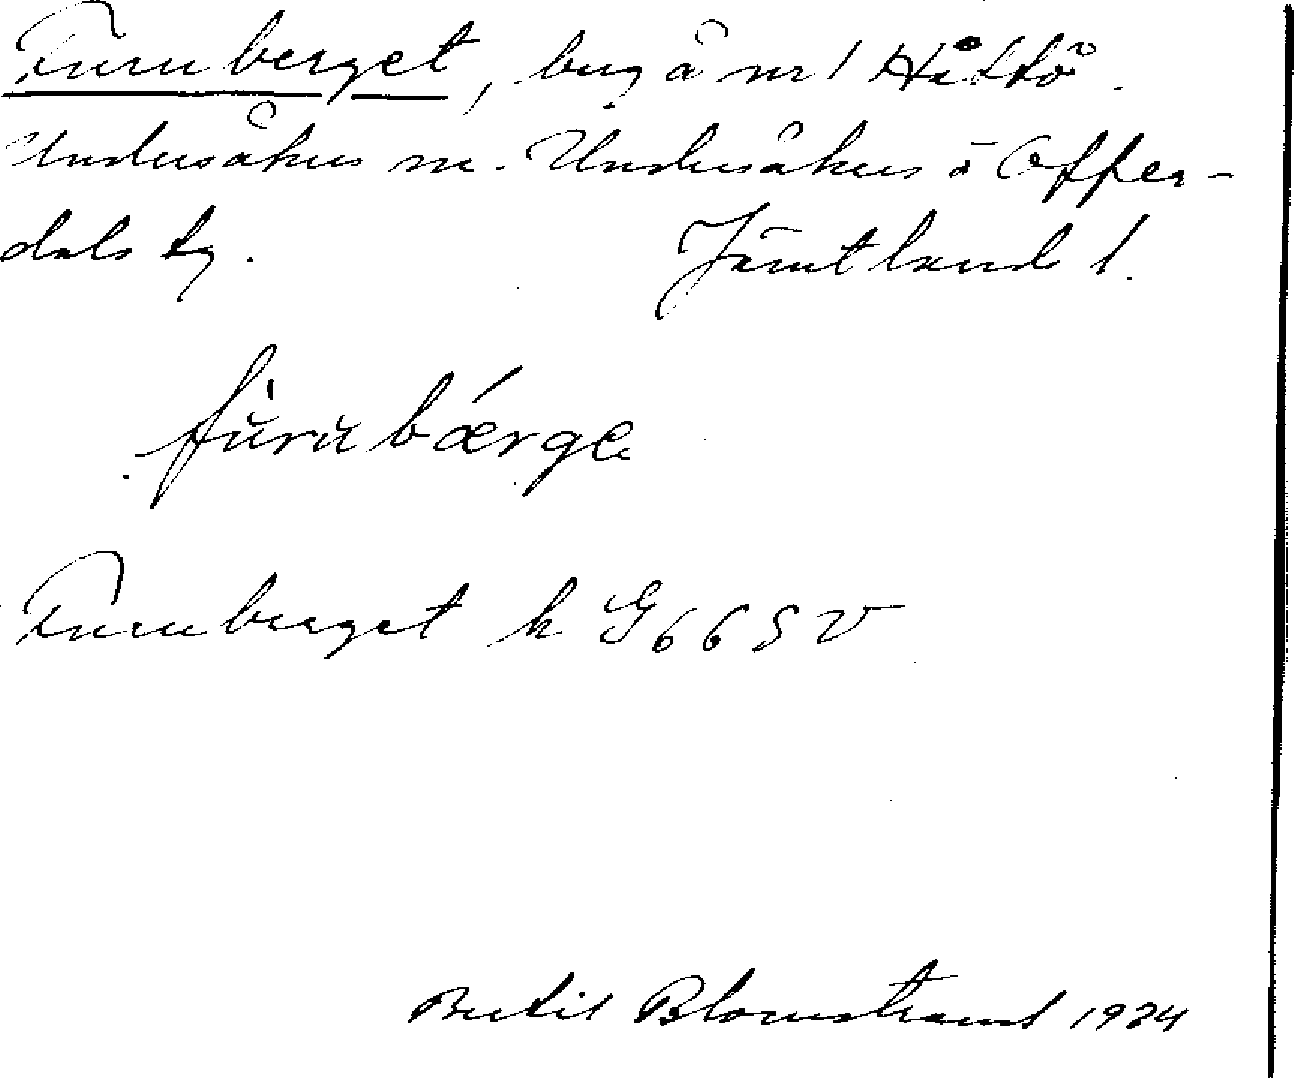 Furuberget, byg å nr 1 Håttö.
Undersåkers sn. Undersåkers o Offer-
dals tg. Jämtlands l.
fŭrŭbǽrge
Furuberget k G 66 S V
Bertil Blomstrand 1934